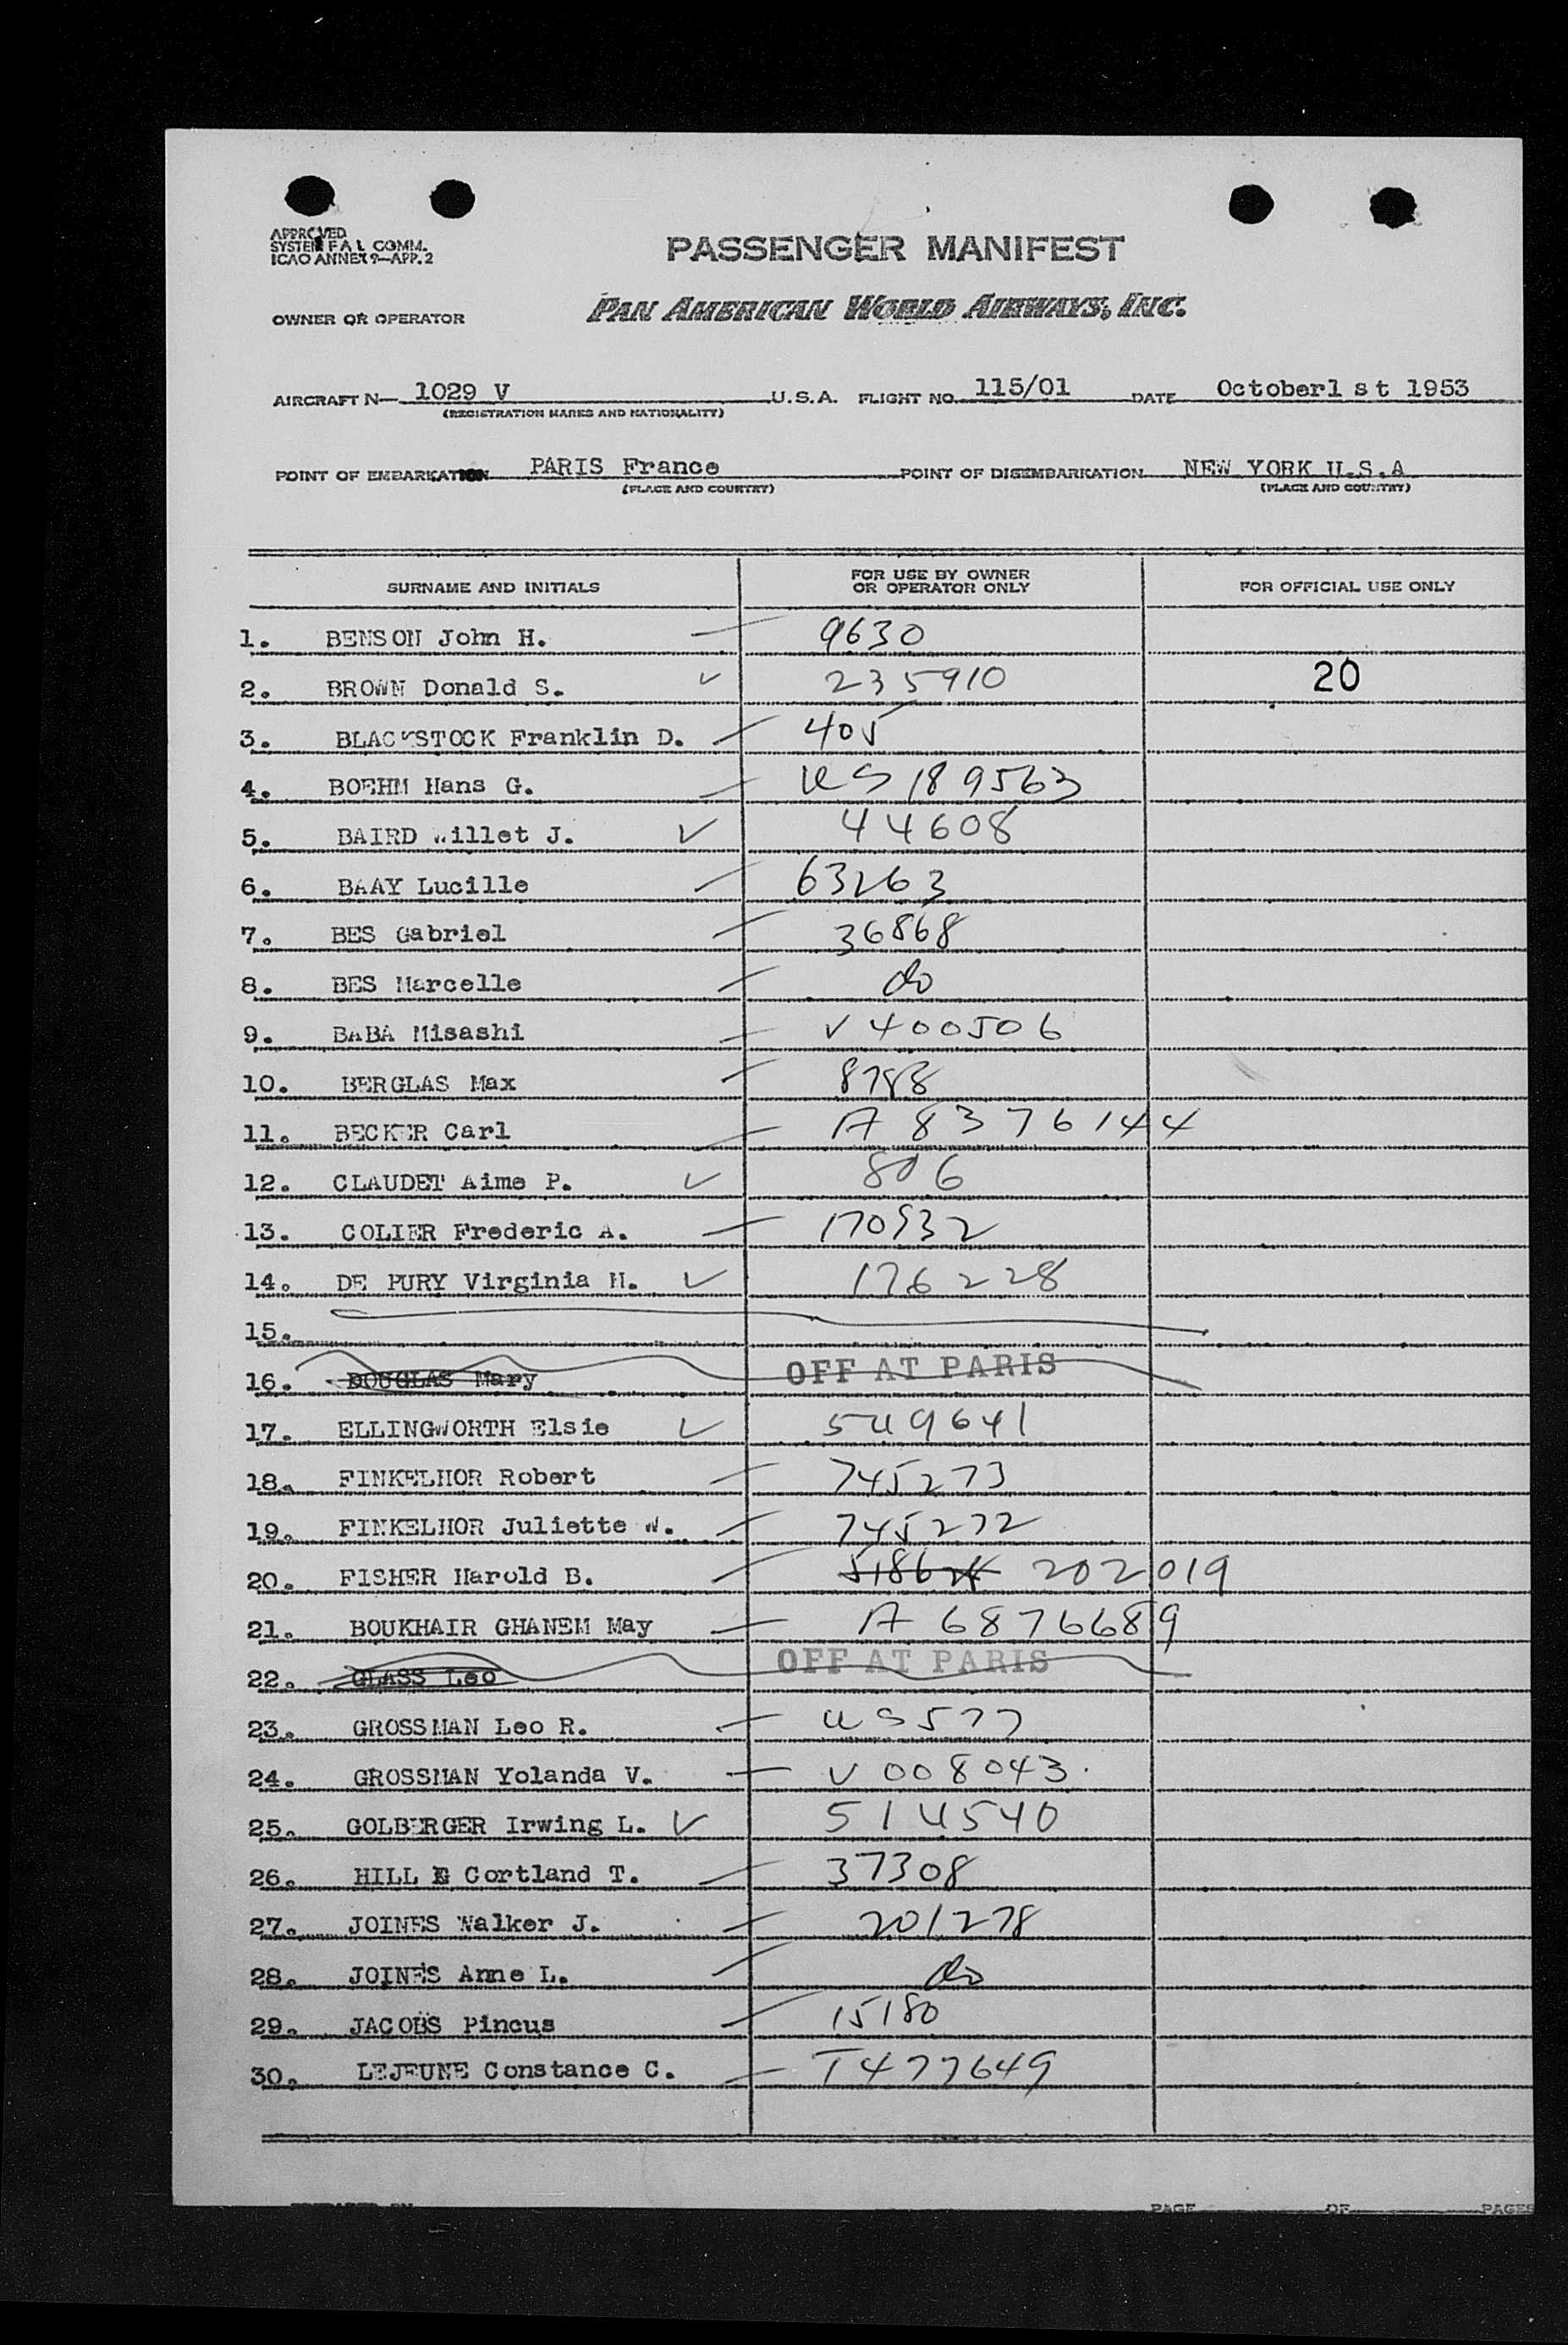 APPROVED
SYSTEM F A L COMM.
ICAO ANNEX 9—APP. 2
PASSENGER MANIFEST
OWNER OR OPERATOR PAN AMERICAN WORLD AIRWAYS, INC.
AIRCRAFT N— 1029 V U.S.A. FLIGHT NO. 115/01 DATE October1 s t 1953
(REGISTRATION MARKS AND NATIONALITY)
POINT OF EMBARKATION PARIS France POINT OF DISEMBARKATION NEW YORK U.S.A
(PLACE AND COUNTRY) (PLACE AND COUNTRY)
SURNAME AND INITIALS FOR USE BY OWNER OR OPERATOR ONLY FOR OFFICIAL USE ONLY
1. BENSON John H. 9630
2. BROWN Donald S. 235910 20
3. BLACKSTOCK Franklin D. 405
4. BOEHM Hans G. US 189563
5. BAIRD Willet J. 44608
6. BAAY Lucille 63263
7. BES Gabriel 36868
8. BES Marcelle do
9. BABA Misashi V 400506
10. BERGLAS Max 8788
11. BECKER Carl A 8376144
12. CLAUDET Aime P. 806
13. COLIER Frederic A. 170932
14. DE PURY Virginia M. 176228
15.
16. DOUGLAS Mary OFF AT PARIS
17. ELLINGWORTH Elsie 549641
18. FINKELHOR Robert 745273
19. FINKELHOR Juliette W. 745272
20. FISHER Harold B. 202019
21. BOUKHAIR GHANEM May A 6876689
22. GLASS Leo OFF AT PARIS
23. GROSSMAN Leo R. US 577
24. GROSSMAN Yolanda V. V 008043
25. GOLBERGER Irwing L. 514540
26. HILL Cortland T. 37308
27. JOINES Walker J. 201278
28. JOINES Anne L. do
29. JACOBS Pincus 15180
30. LEJEUNE Constance C. T477649
PAGE OF PAGES